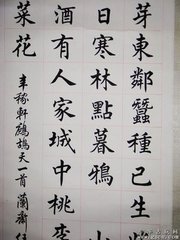 芽東鄰蠶種已生
日寒林點暮鴉
酒有人家城中桃李
菜花
辛稼軒鷓鴣天一首 蘭齋